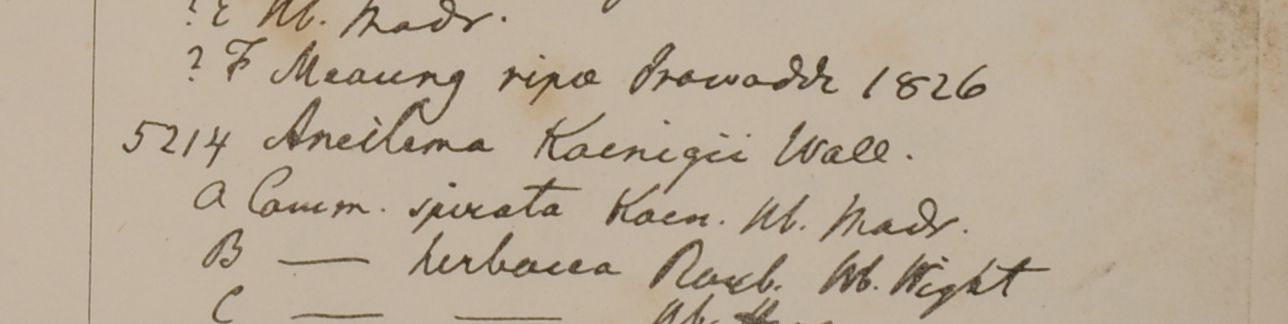 ? E Hb. Madr.
? F Meaung ripæ Irawaddi 1826
5214 Aneilema Koenigii Wall.
A Comm. spirata Koen. Hb. Madr.
B — herbacea Roxb. Hb. Wight
C — — Hb.